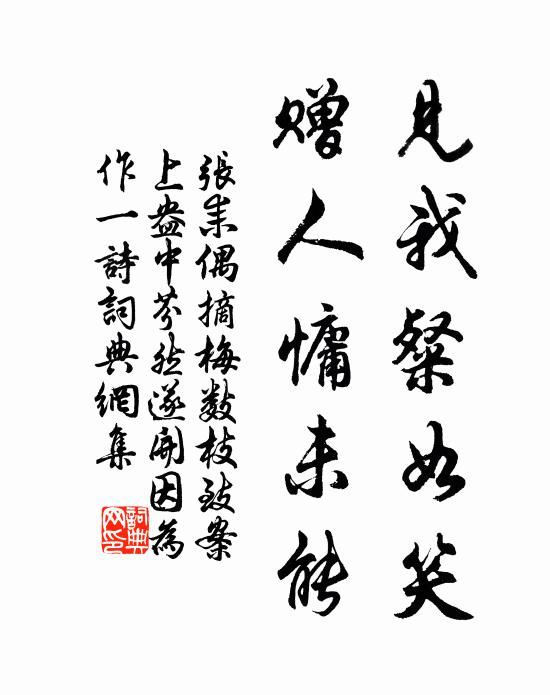 見我粲如笑
贈人慵未能
張耒偶摘梅數枝致案
上盎中芬然遂開因為
作一詩詞典網集
詞典網印